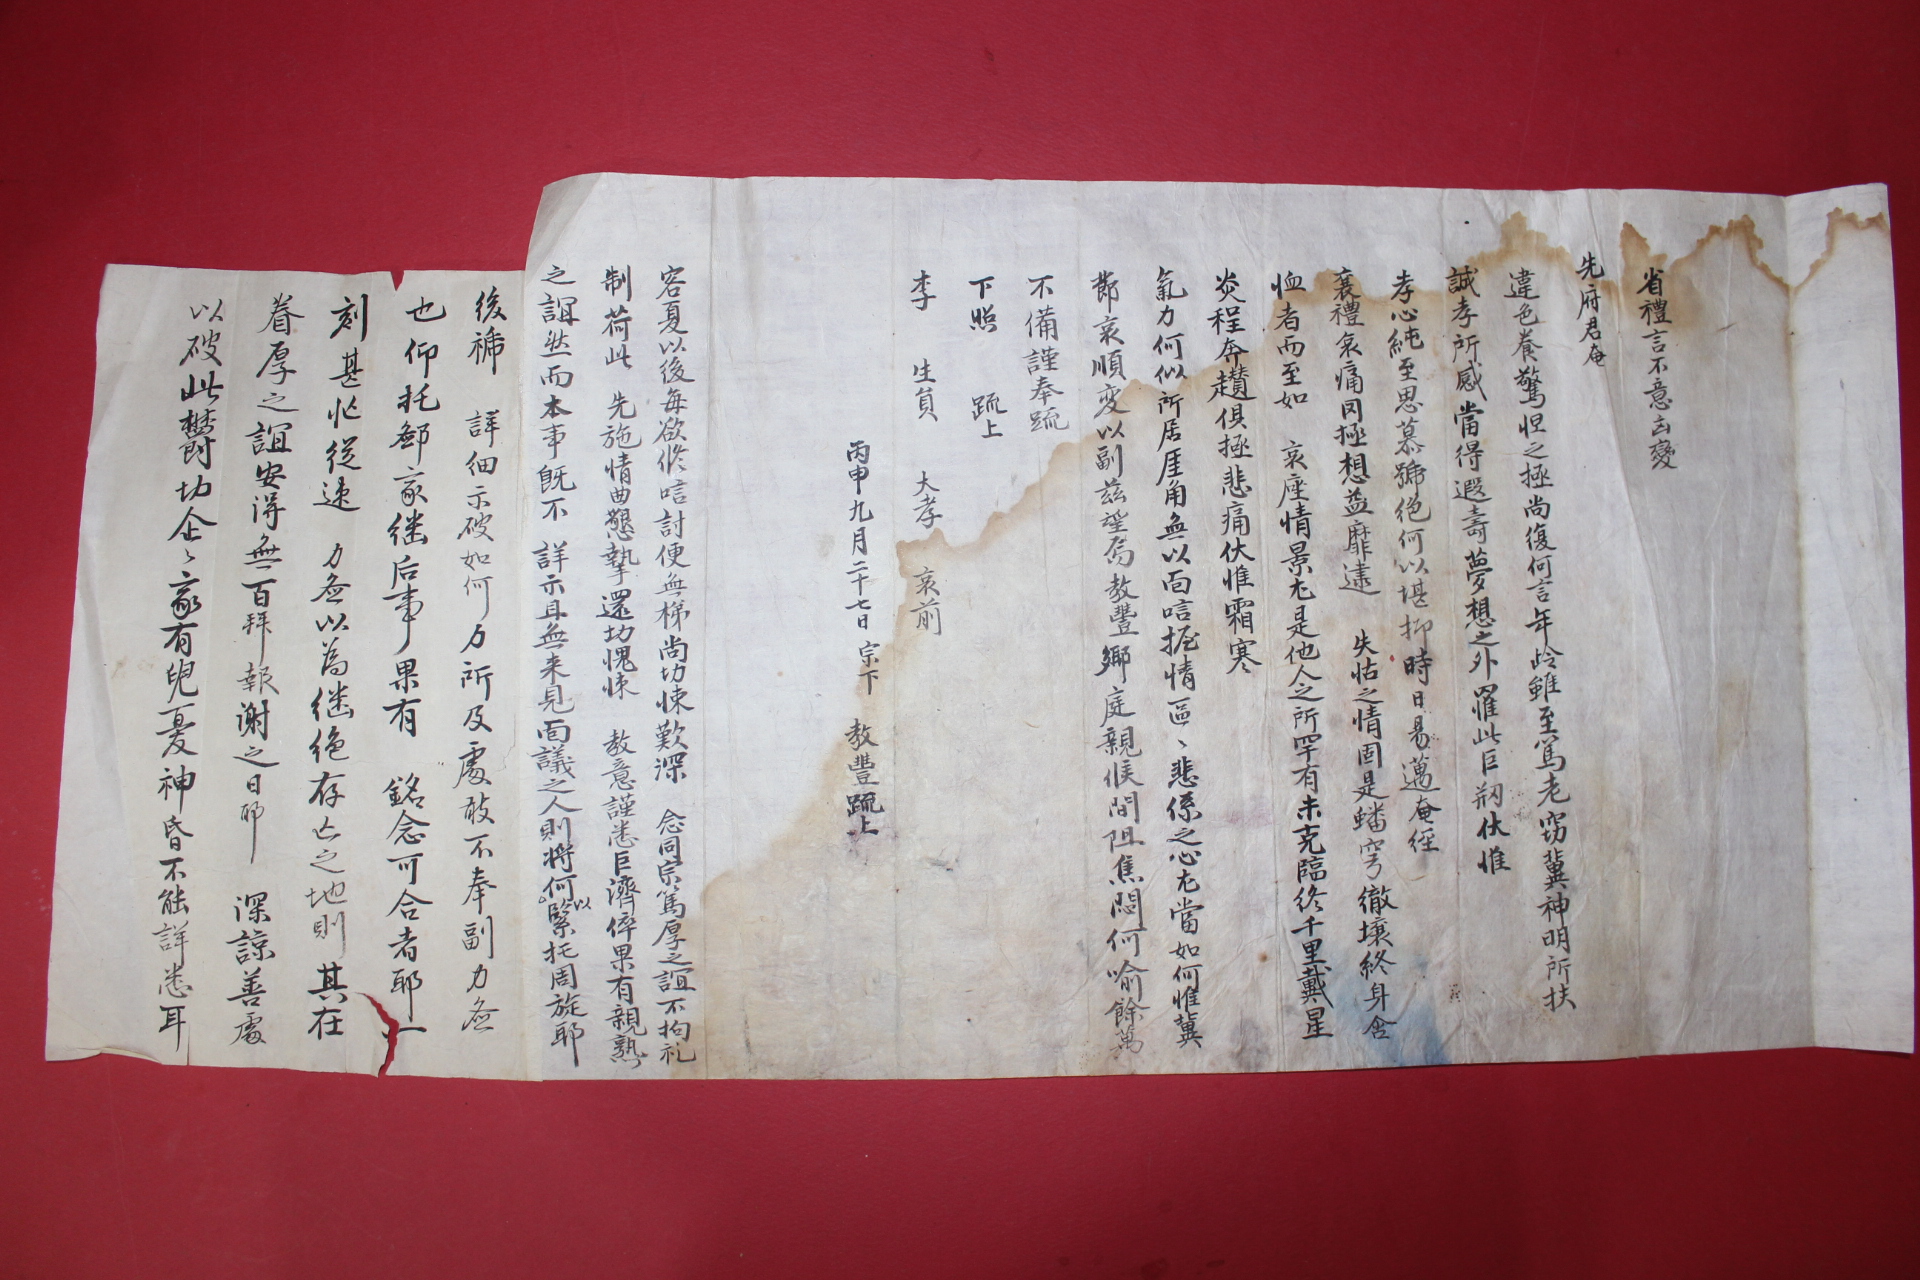 省禮言不意凶變
先府君奄
違色養驚怛之極尚復何言年齡雖至篤老窃冀神明所扶
誠孝所感當得遐壽夢想之外罹此巨刱伏惟
孝心純至思慕號絶何以堪抑時日易邁奄経
襄禮哀痛冈極想益靡逮 失怙之情固是蟠穹徹壤終身含
恤者而至如 哀座情景尤是他人之所罕有未克臨終千里戴星
炎程奔趲俱極悲痛伏惟霜寒
氣力何似所居厓角無以面唁握情區〻悲係之心尤當如何惟冀
節哀順變以副玆望焉教豐鄉庭親候間阻焦悶何喻餘萬
不備謹奉疏
下照 疏上
李 生員 大孝 哀前
丙申九月二十七日宗下 教豐 疏上
容夏以後每欲俻唁討便無梯尚切悚歎深 念同宗篤厚之誼不拘礼
制荷此 先施情曲懇摯還切愧悚 教意謹悉巨濟倅果有親熟
之誼然而本事旣不 詳示且無来見面議之人則將何以緊托周旋耶
後褫 詳細示破如何力所及處敢不奉副力無
也仰托鄙家继后事果有 銘念可合者耶一
刻甚忙從速 力無以為继絶存亡之地則其在
眷厚之誼安得無百拜報謝之日耶 深諒善處
以破此欝切企〻家有兒憂神昏不能詳悉耳